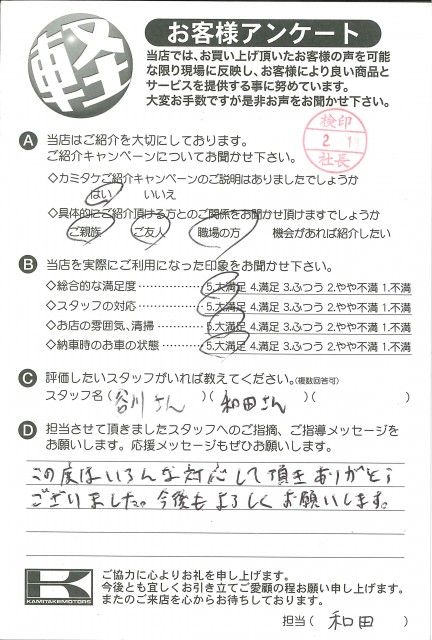 軽
お客様アンケート
当店では、お買い上げ頂いたお客様の声を可能
な限り現場に反映し、お客様により良い商品と
サービスを提供する事に努めています。
大変お手数ですが是非お声をお聞かせ下さい。
検印
社長
A 当店はご紹介を大切にしております。
ご紹介キャンペーンについてお聞かせ下さい。
◇カミタケご紹介キャンペーンのご説明はありましたでしょうか
はい いいえ
◇具体的にご紹介頂ける方とのご関係をお聞かせ頂けますでしょうか
ご親族 ご友人 職場の方 機会があれば紹介したい
B 当店を実際にご利用になった印象をお聞かせ下さい。
◇総合的な満足度‥‥‥‥ 5.大満足 4.満足 3.ふつう 2.やや不満 1.不満
◇スタッフの対応‥‥‥‥ 5.大満足 4.満足 3.ふつう 2.やや不満 1.不満
◇お店の雰囲気、清掃‥‥ 5.大満足 4.満足 3.ふつう 2.やや不満 1.不満
◇納車時のお車の状態‥‥ 5.大満足 4.満足 3.ふつう 2.やや不満 1.不満
C 評価したいスタッフがいれば教えてください。(複数回答可)
スタッフ名(谷川さん)(和田さん)( )
D 担当させて頂きましたスタッフへのご指摘、ご指導メッセージを
お願いします。応援メッセージもぜひお願いします。
この度はいろんな対応して頂きありがとう
ございました。今後もよろしくお願いします。
K
KAMITAKEMOTORS
ご協力に心よりお礼を申し上げます。
今後とも宜しくお引き立てご愛顧の程お願い申し上げます。
またのご来店を心からお待ちしております。
担当( 和田 )